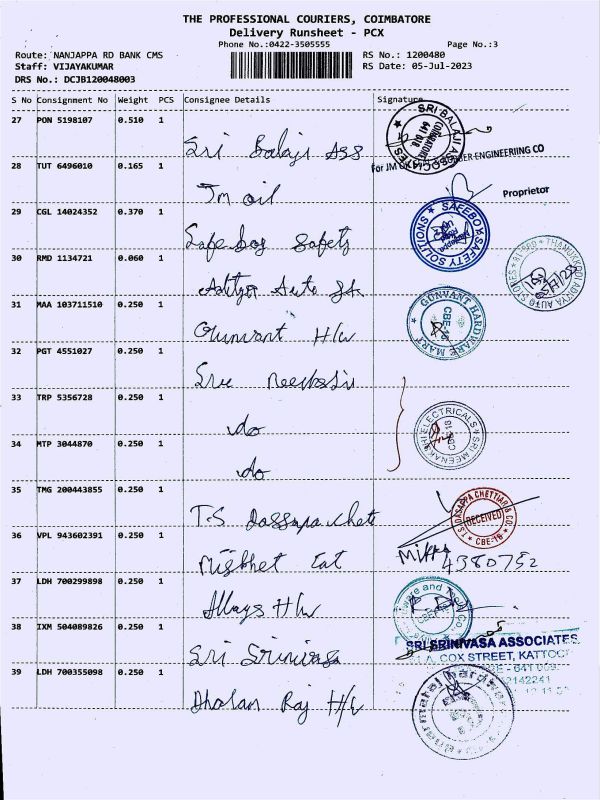 THE PROFESSIONAL COURIERS, COIMBATORE
Delivery Runsheet - PCX
Phone No.:0422-3505555
Page No.:3
Route: NANJAPPA RD BANK CMS
RS No.: 1200480
Staff: VIJAYAKUMAR
RS Date: 05-Jul-2023
DRS No.: DCJB120048003
S No Consignment No Weight PCS Consignee Details Signature
27 PON 5198107 0.510 1
Sri Balaji Ass
SRI BALAJI ASSOCIATES
COIMBATORE
641 018
28 TUT 6496010 0.165 1
Jm oil
For JM ENGINEERIING CO
Proprietor
29 CGL 14024352 0.370 1
Safe box Safety
SAFEBOX SAFETY SOLUTIONS
30 RMD 1134721 0.060 1
Aditya Auto
AUTO STORES
31 MAA 103711510 0.250 1
Gunvant H/w
GUNVANT HARDWARE MART
CBE-18
32 PGT 4551027 0.250 1
Sree
33 TRP 5356728 0.250 1
do
SRI MEENAKSHI ELECTRICALS
CBE-18
34 MTP 3044870 0.250 1
do
35 TMG 200443855 0.250 1
T.S Dassapa
T.S. DASAPPA CHETTIAR & CO.
RECEIVED
CBE-18
36 VPL 943602391 0.250 1
4380752
37 LDH 700299898 0.250 1
H/w
38 IXM 504089826 0.250 1
Sri Srinivasa
SRI SRINIVASA ASSOCIATES
COX STREET, KATTOOR
39 LDH 700355098 0.250 1
Raj H/w